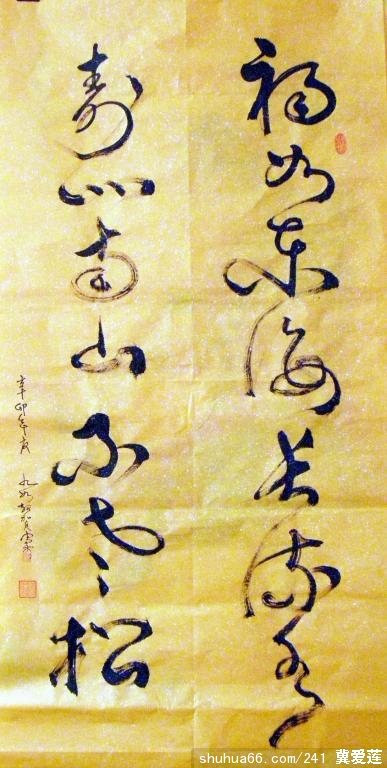 福如东海长流水
寿比南山不老松
辛卯年夜
shuhua66.com/241 冀爱莲